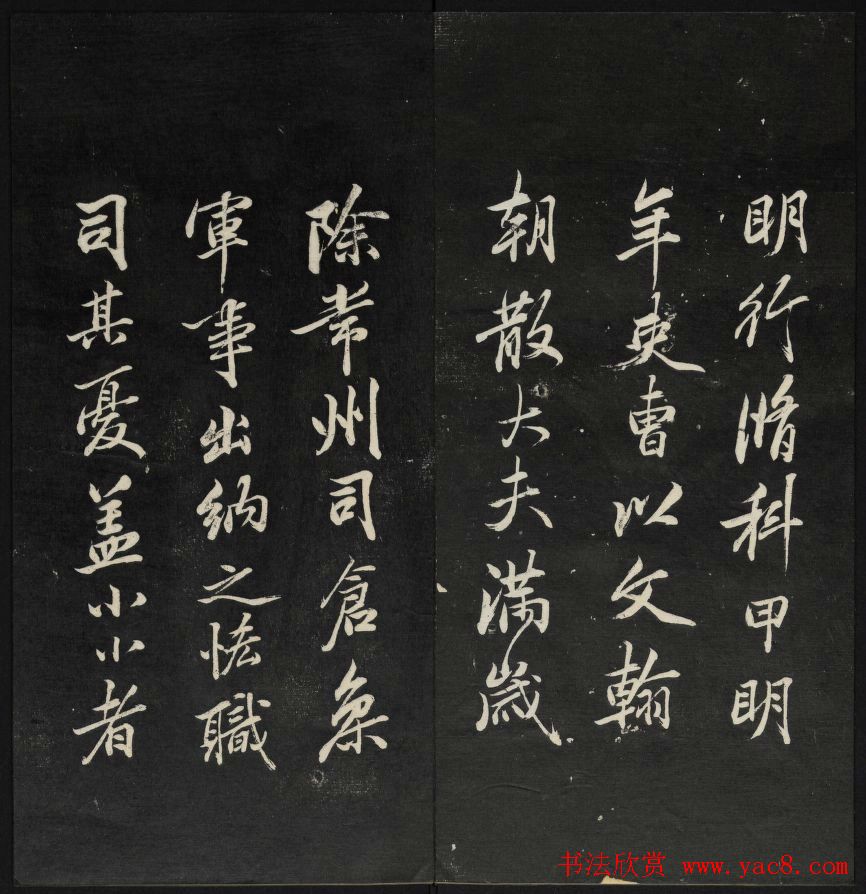 明行脩科甲明
年吏曹以文翰
朝散大夫滿歲
除常州司倉叅
軍事出納之恡職
司其憂盖小小者
书法欣赏 www.yac8.com